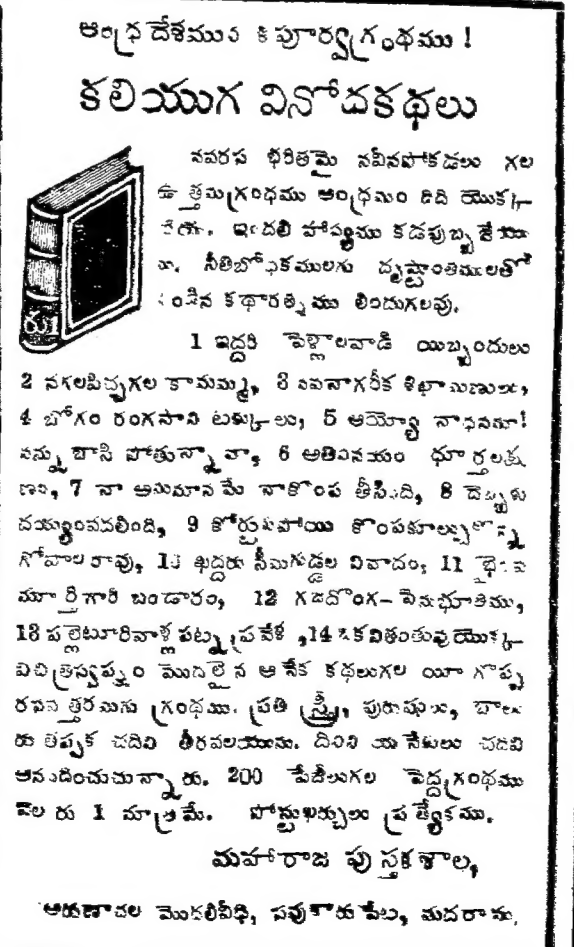 ఆంధ్ర దేశమున కపూర్వగ్రంథము !
కలియుగ వినోదకథలు
నవరస భరితమై నవీనపోకడలు గల
ఉత్తమగ్రంథము ఆంధ్రమం దిది యొక్క
ఇందలి హాస్యము కడపుబ్బ జేయు
ను. నీతిబోధకములగు దృష్టాంతములతో
కథారత్నము లిందుగలవు.
1 ఇద్దరి పెళ్లాలవాడి యిబ్బందులు
2 నగలపిచ్చగల కామమ్మ, 3 నవనాగరీక శిఖామణులు,
4 బోగం రంగసాని టక్కులు, 5 అయ్యో నాధనమా!
నన్ను బాసి పోతున్నావా, 6 అతివినయం ధూర్తలక్ష
ణం, 7 నా అనుమానమే నాకొంప తీసింది, 8 దెబ్బకు
దయ్యంవదలింది, 9 కోర్టుకుపోయి కొంపకూల్చుకొన్న
గోపాలరావు, 10 ఖద్దరు సీమగుడ్డల వివాదం, 11
మూర్తిగారి బండారం, 12 గజదొంగ-పెనుభూతము,
13 పల్లెటూరివాళ్ల పట్న ప్రవేశ ,14 ఒకవితంతువుయొక్క
విచిత్రస్వప్నం మొదలైన అనేక కథలుగల యీ గొప్ప
గ్రంథము. ప్రతి స్త్రీ, పురుషులు, బాలు
రు తప్పక చదివి తీరవలయును. దీనిని యనేకులు చదివి
ఆనందించుచున్నారు. 200 పేజీలుగల పెద్దగ్రంథము
వెల రు 1 మాత్రమే. పోస్టుఖర్చులు ప్రత్యేకము.
మహారాజ పుస్తకశాల,
అరుణాచల మొదలివీధి, చవుకారుపేట, మదరాసు.